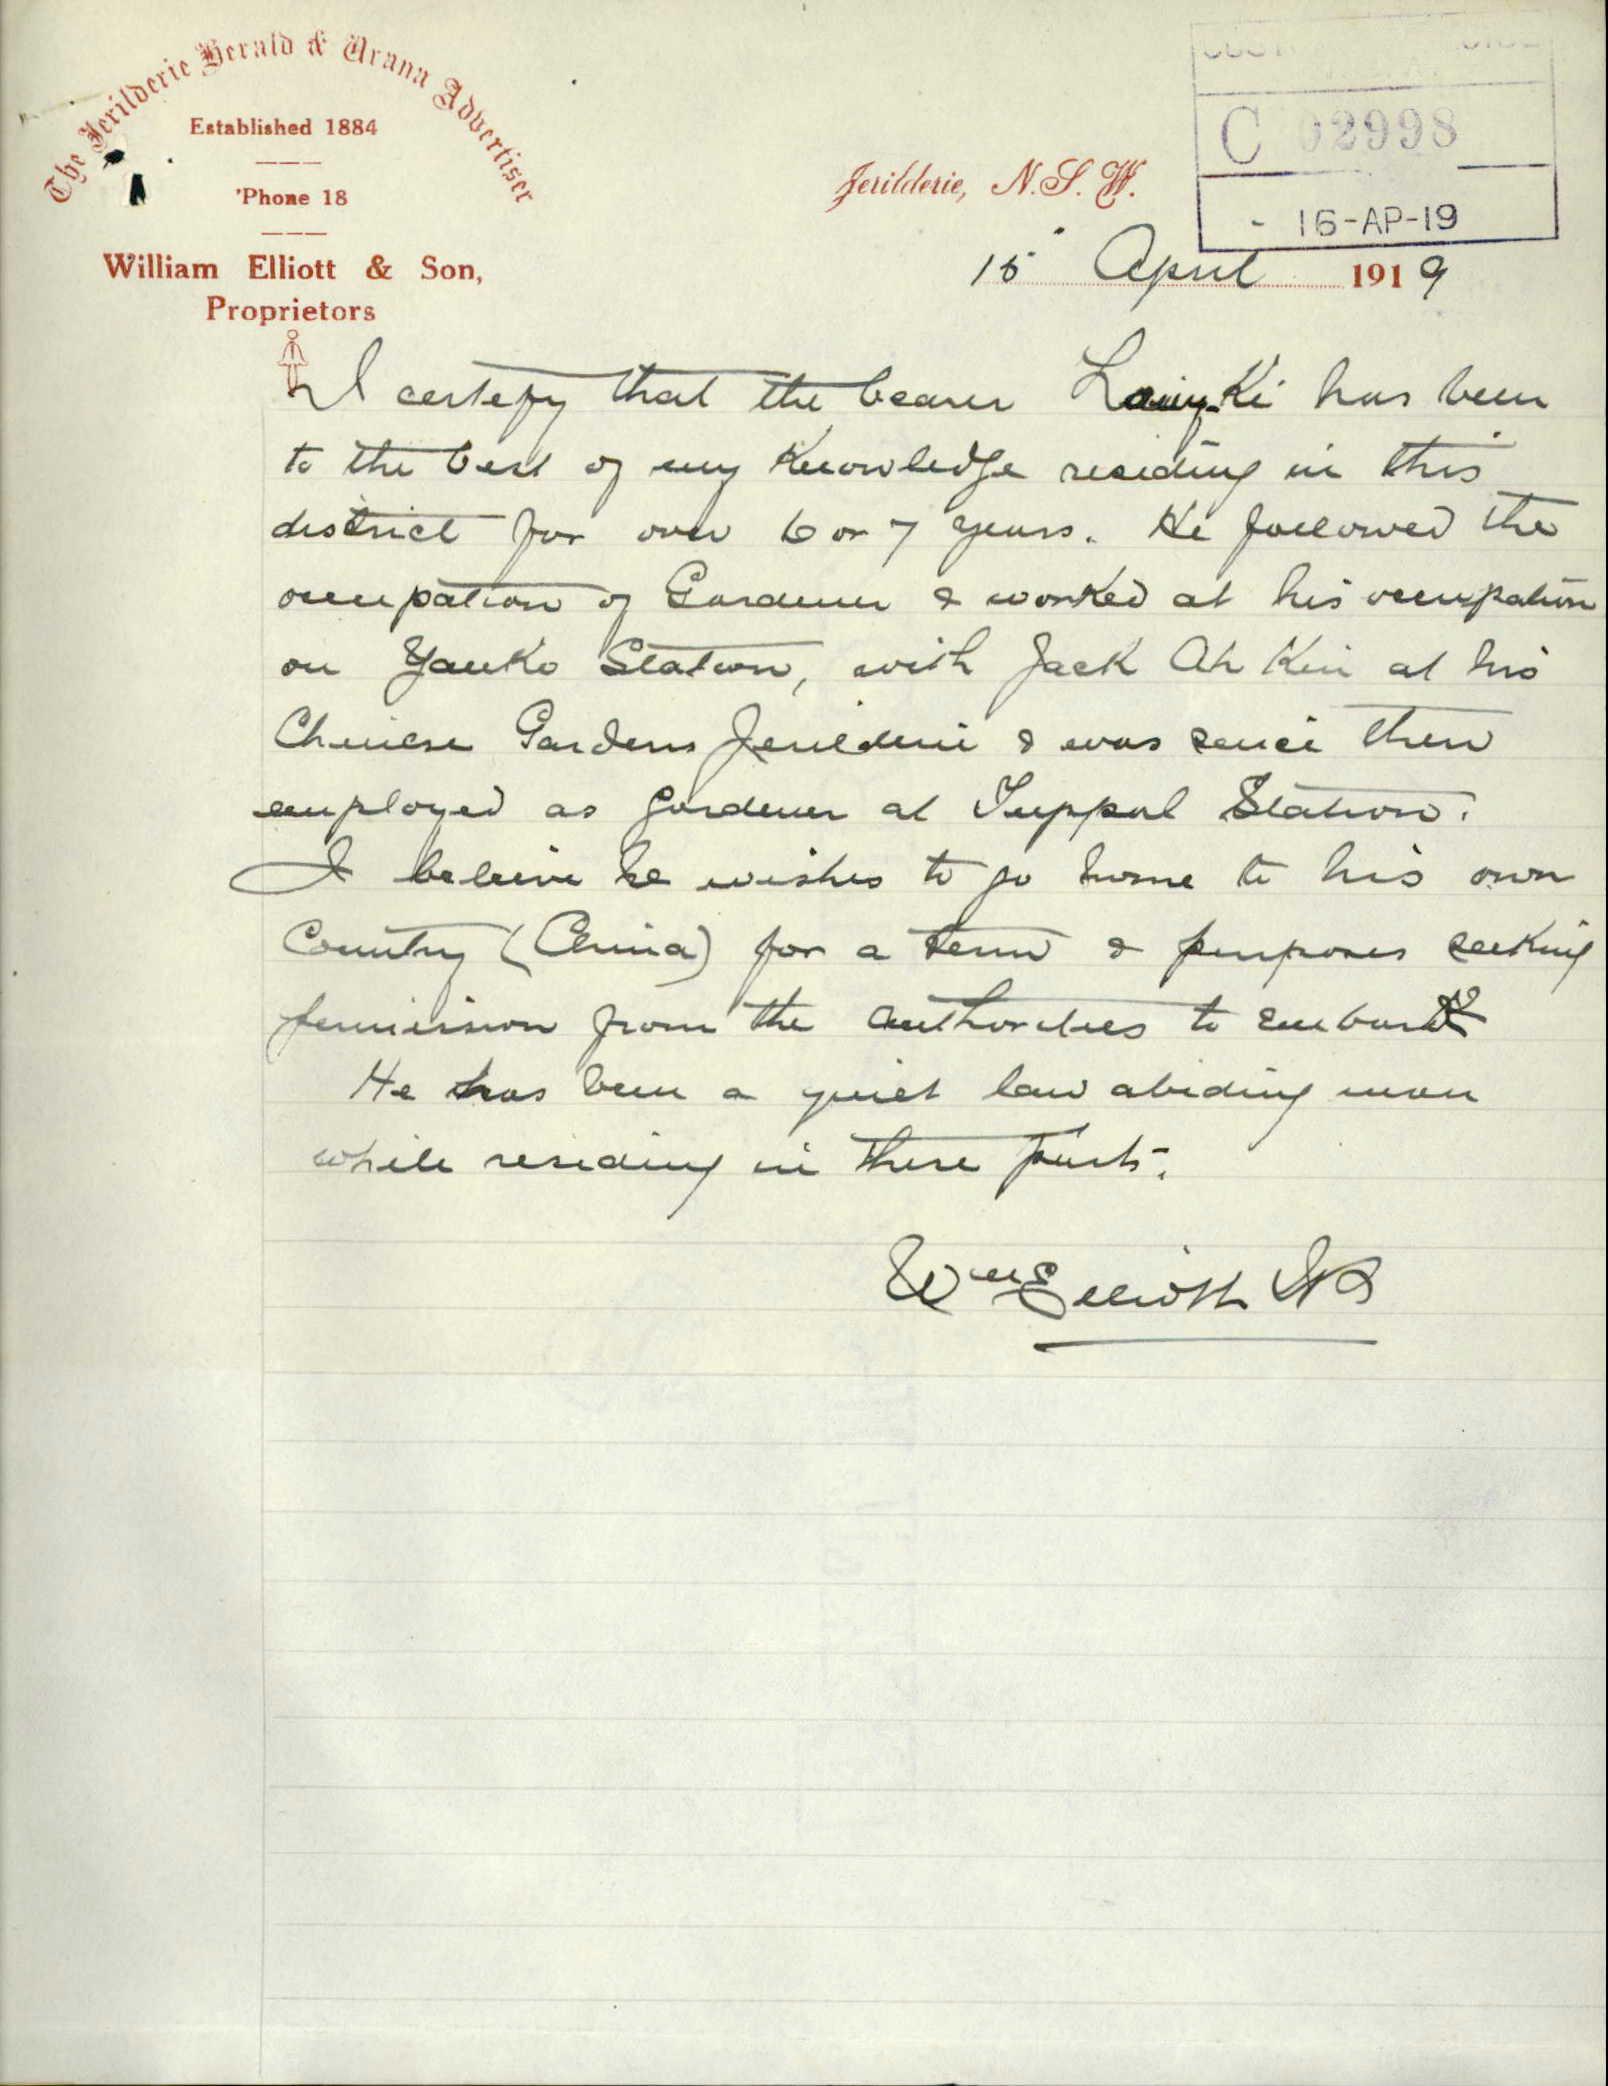 The Jerilderie Herald & Urana Advertiser
Established 1884
'Phone 18
William Elliott & Son,
Proprietors
C 02998
- 16-AP-19
Jerilderie, N. S. W.
15 April 1919
I certify that the bearer Ki has been
to the best of my knowledge residing in this
district for over 6 or 7 years. He followed the
occupation of Gardener & worked at his occupation
on Yanko Station, with Jack Ah Kin at his
Chinese Gardens Jerilderie & was since then
employed as gardener at Tuppal Station.
I believe he wishes to go home to his own
Country (China) for a term & purposes seeking
permission from the authorities to embark
He has been a quiet law abiding man
while residing in these parts.
Wm Elliott JP